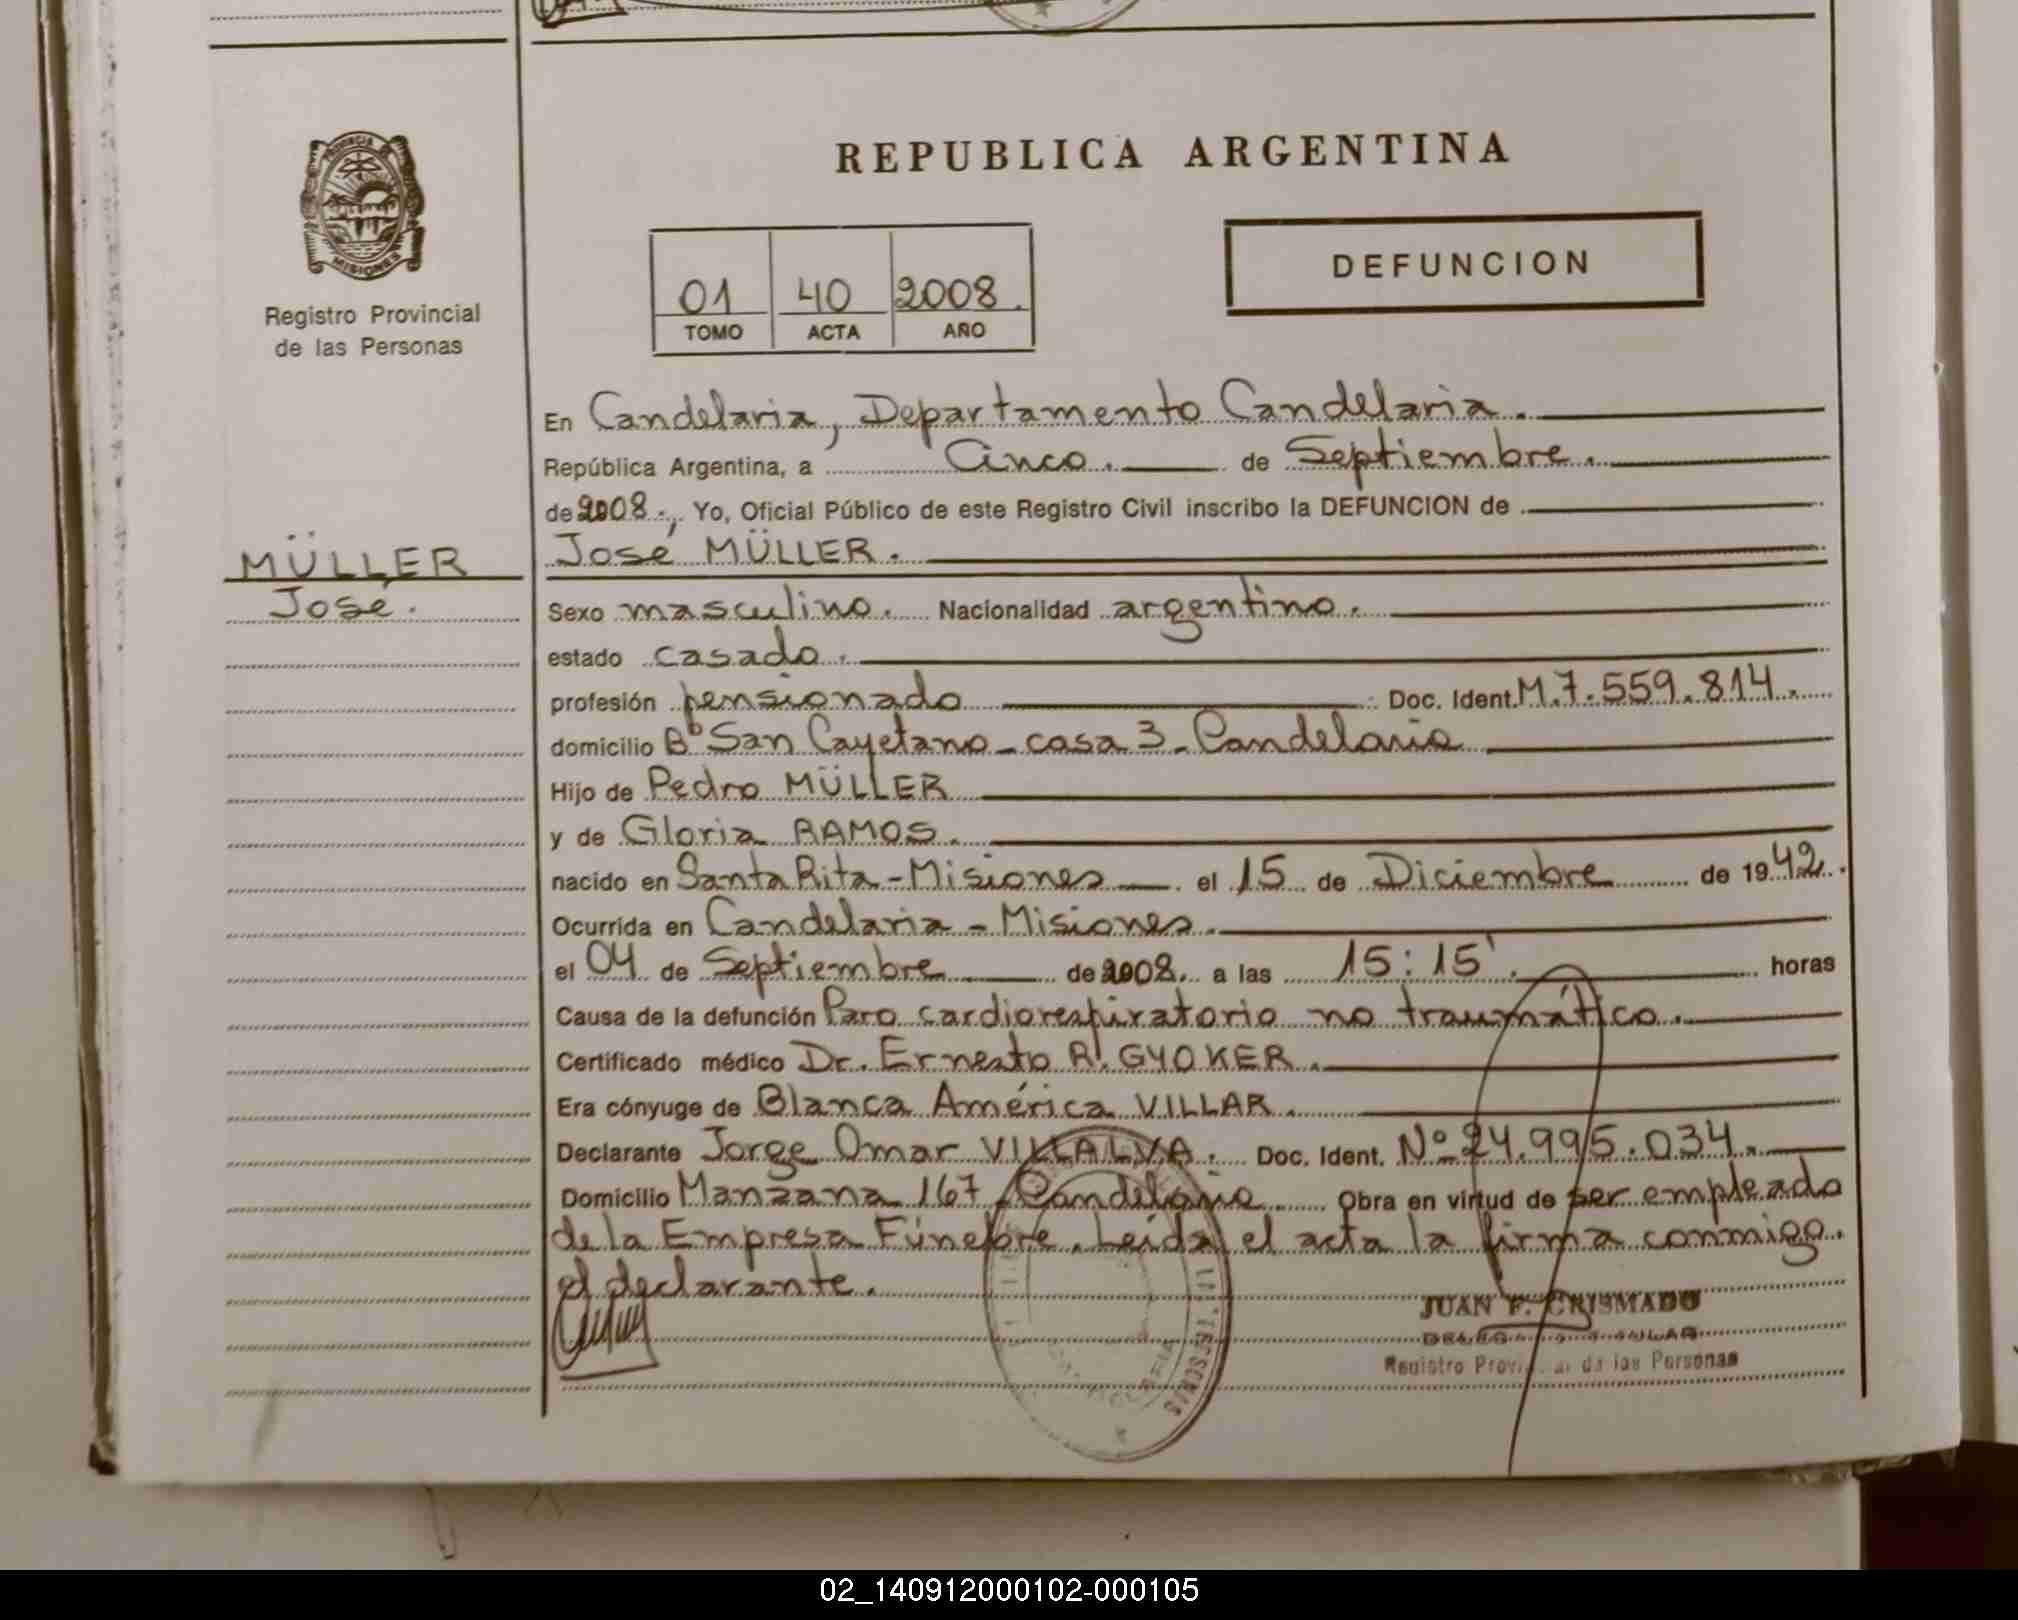 PROVINCIA DE
MISIONES
Registro Provincial
de las Personas
MÜLLER
José.
REPUBLICA ARGENTINA
01 40 2008.
TOMO ACTA AÑO
DEFUNCION
En Candelaria, Departamento Candelaria.
República Argentina, a Cinco. de Septiembre.
de 2008., Yo, Oficial Público de este Registro Civil inscribo la DEFUNCION de
José MÜLLER.
Sexo masculino. Nacionalidad argentino.
estado casado.
profesión pensionado Doc. Ident. M.7.559.814.
domicilio Bº San Cayetano - casa 3 - Candelaria
Hijo de Pedro MÜLLER
y de Gloria RAMOS.
nacido en Santa Rita - Misiones el 15 de Diciembre de 1942.
Ocurrida en Candelaria - Misiones.
el 04 de Septiembre de 2008. a las 15:15'. horas
Causa de la defunción Paro cardiorespiratorio no traumático.
Certificado médico Dr. Ernesto R. GYOKER.
Era cónyuge de Blanca América VILLAR.
Declarante Jorge Omar VILLALVA. Doc. Ident. Nº 24.995.034.
Domicilio Manzana 167 - Candelaria Obra en virtud de ser empleado
de la Empresa Fúnebre. Leída el acta la firma conmigo.
el declarante.
JUAN F. CRISMADO
Registro Provincial de las Personas
02_140912000102-000105